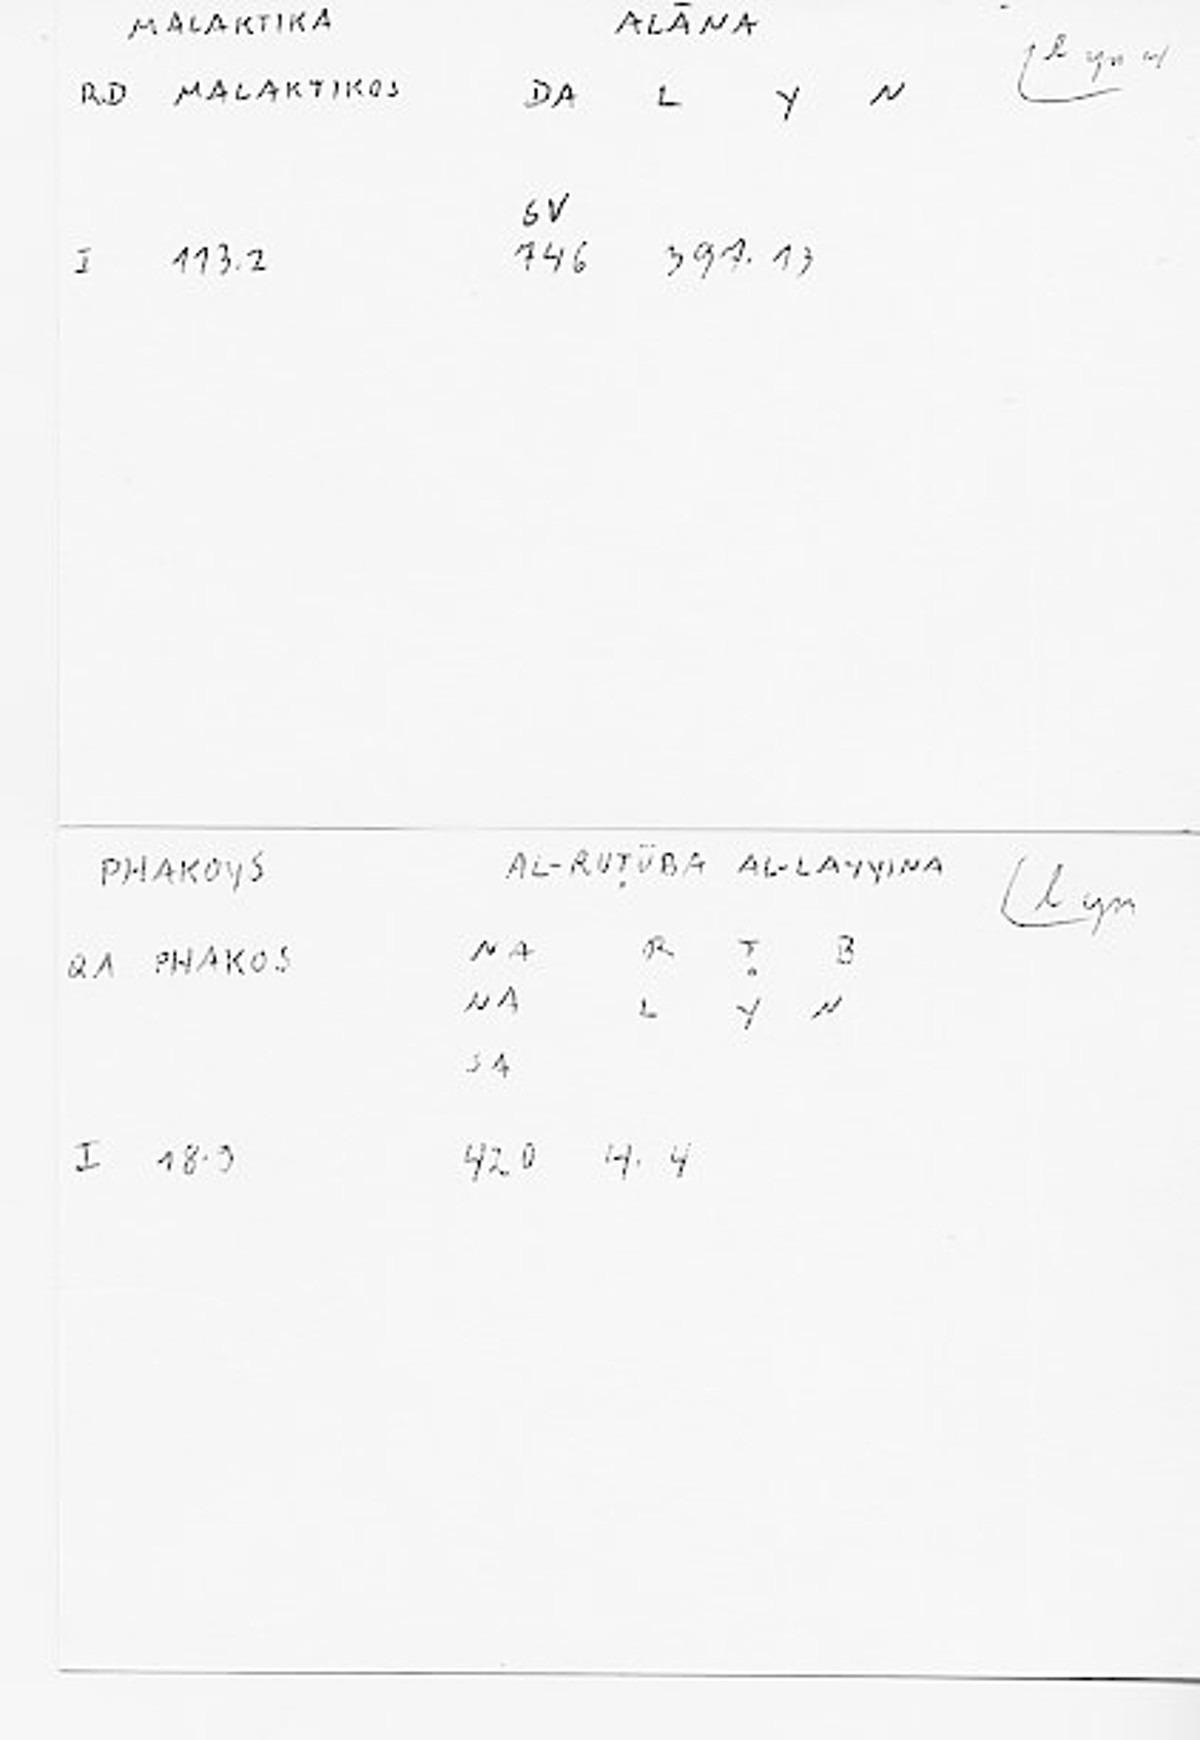 MALAKTIKA ALĀNA
RD MALAKTIKOS DA L Y N
SV
I 113.2 746 397.13
PHAKOYS AL-RUṬŪBA AL-LAYYINA lyn
QA PHAKOS NA R Ṭ B
NA L Y N
SA
I 18.9 420 4.4